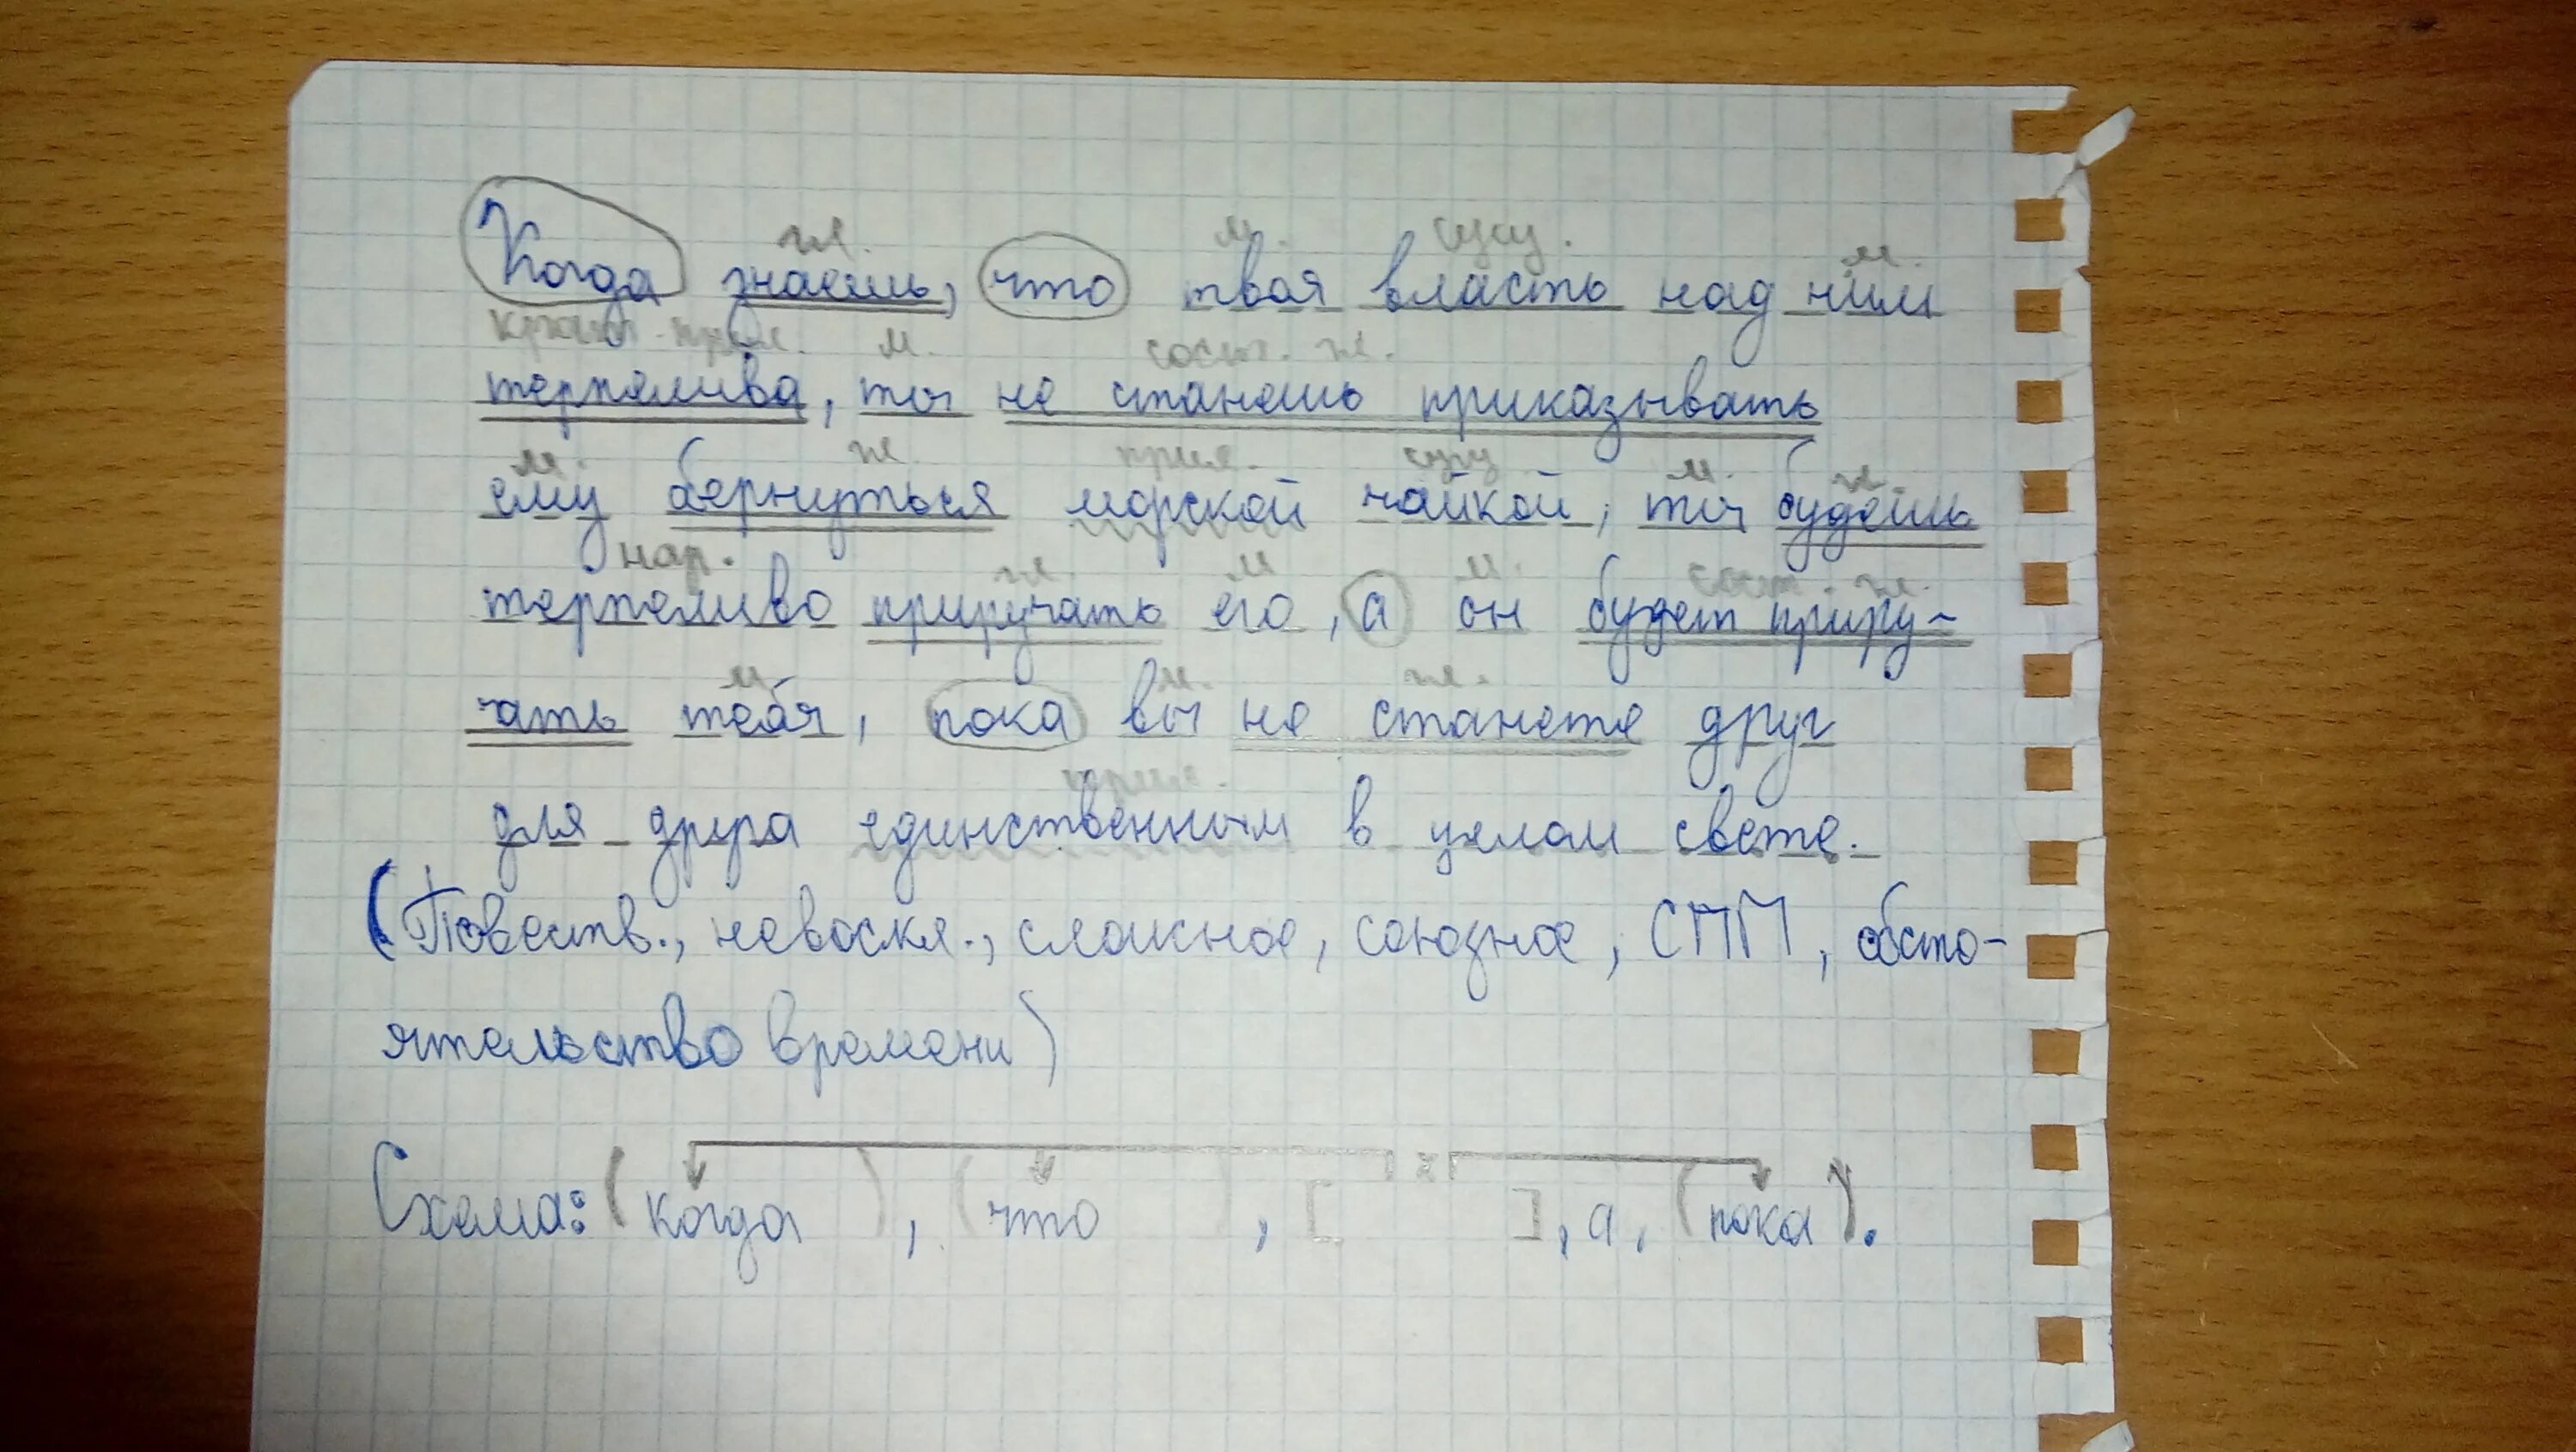 гл. м. сущ. м.
Когда знаешь, что твоя власть над ним
кратк. прил. м. сост. гл.
терпелива, ты не станешь приказывать
м. гл. прил. сущ м. гл.
ему обернуться морской чайкой, ты будешь
нар. гл. м м. сост. гл.
терпеливо приручать его, а он будет приру-
м м. гл.
чать тебя, пока вы не станете друг
прил.
для друга единственным в целом свете.
(Повеств., невоскл., сложное, союзное, СПП, обсто-
ятельство времени)
Схема: (когда ), (что ), [ х ], а, (пока).